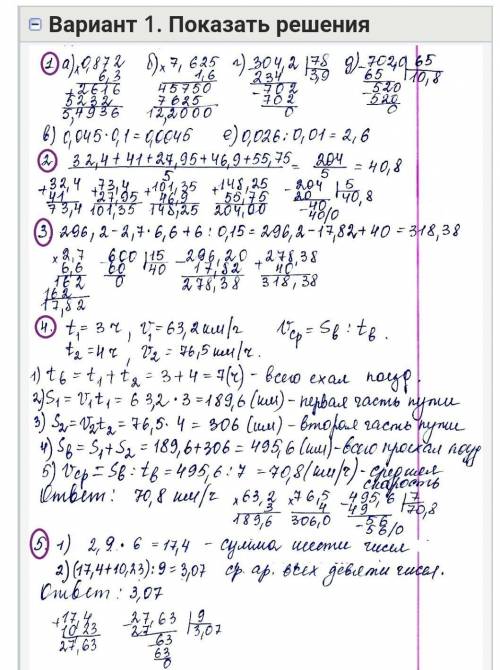 Вариант 1. Показать решения
1 а) × 0,872 б) × 7,625 г) 304,2 | 78 д) 702,0 | 65
6,3 1,6 234 3,9 65 10,8
2616 45750 - 702 - 520
5232 7625 702 520
5,4936 12,2000 0 0
в) 0,045·0,1=0,0045 е) 0,026:0,01=2,6
2 32,4+41+27,95+46,9+55,75 = 204 = 40,8
5 5
+ 32,4 + 73,4 + 101,35 + 148,25 - 204 | 5
41 27,95 46,9 55,75 20 40,8
73,4 101,35 148,25 204,00 - 40
40/0
3 296,2-2,7·6,6+6:0,15=296,2-17,82+40=318,38
× 2,7 - 600 | 15 - 296,20 + 278,38
6,6 60 40 17,82 40
162 0 278,38 318,38
162
17,82
4. t1=3ч, v1=63,2км/ч vср=Sв:tв.
t2=4ч, v2=76,5км/ч.
1) tв=t1+t2=3+4=7(ч) - всего ехал поезд.
2) S1=v1t1=63,2·3=189,6(км)-первая часть пути
3) S2=v2t2=76,5·4=306(км)-вторая часть пути
4) Sв=S1+S2=189,6+306=495,6(км)-всего проехал поезд
5) vср=Sв:tв=495,6:7=70,8(км/ч)-средняя скорость
Ответ: 70,8 км/ч × 63,2 × 76,5 - 495,6 | 7
3 4 49 70,8
189,6 306,0 - 56
56/0
5. 1) 2,9·6=17,4 - сумма шести чисел
2) (17,4+10,23):9=3,07 ср. ар. всех девяти чисел.
Ответ: 3,07
+ 17,4 - 27,63 | 9
10,23 27 3,07
27,63 63
63
0